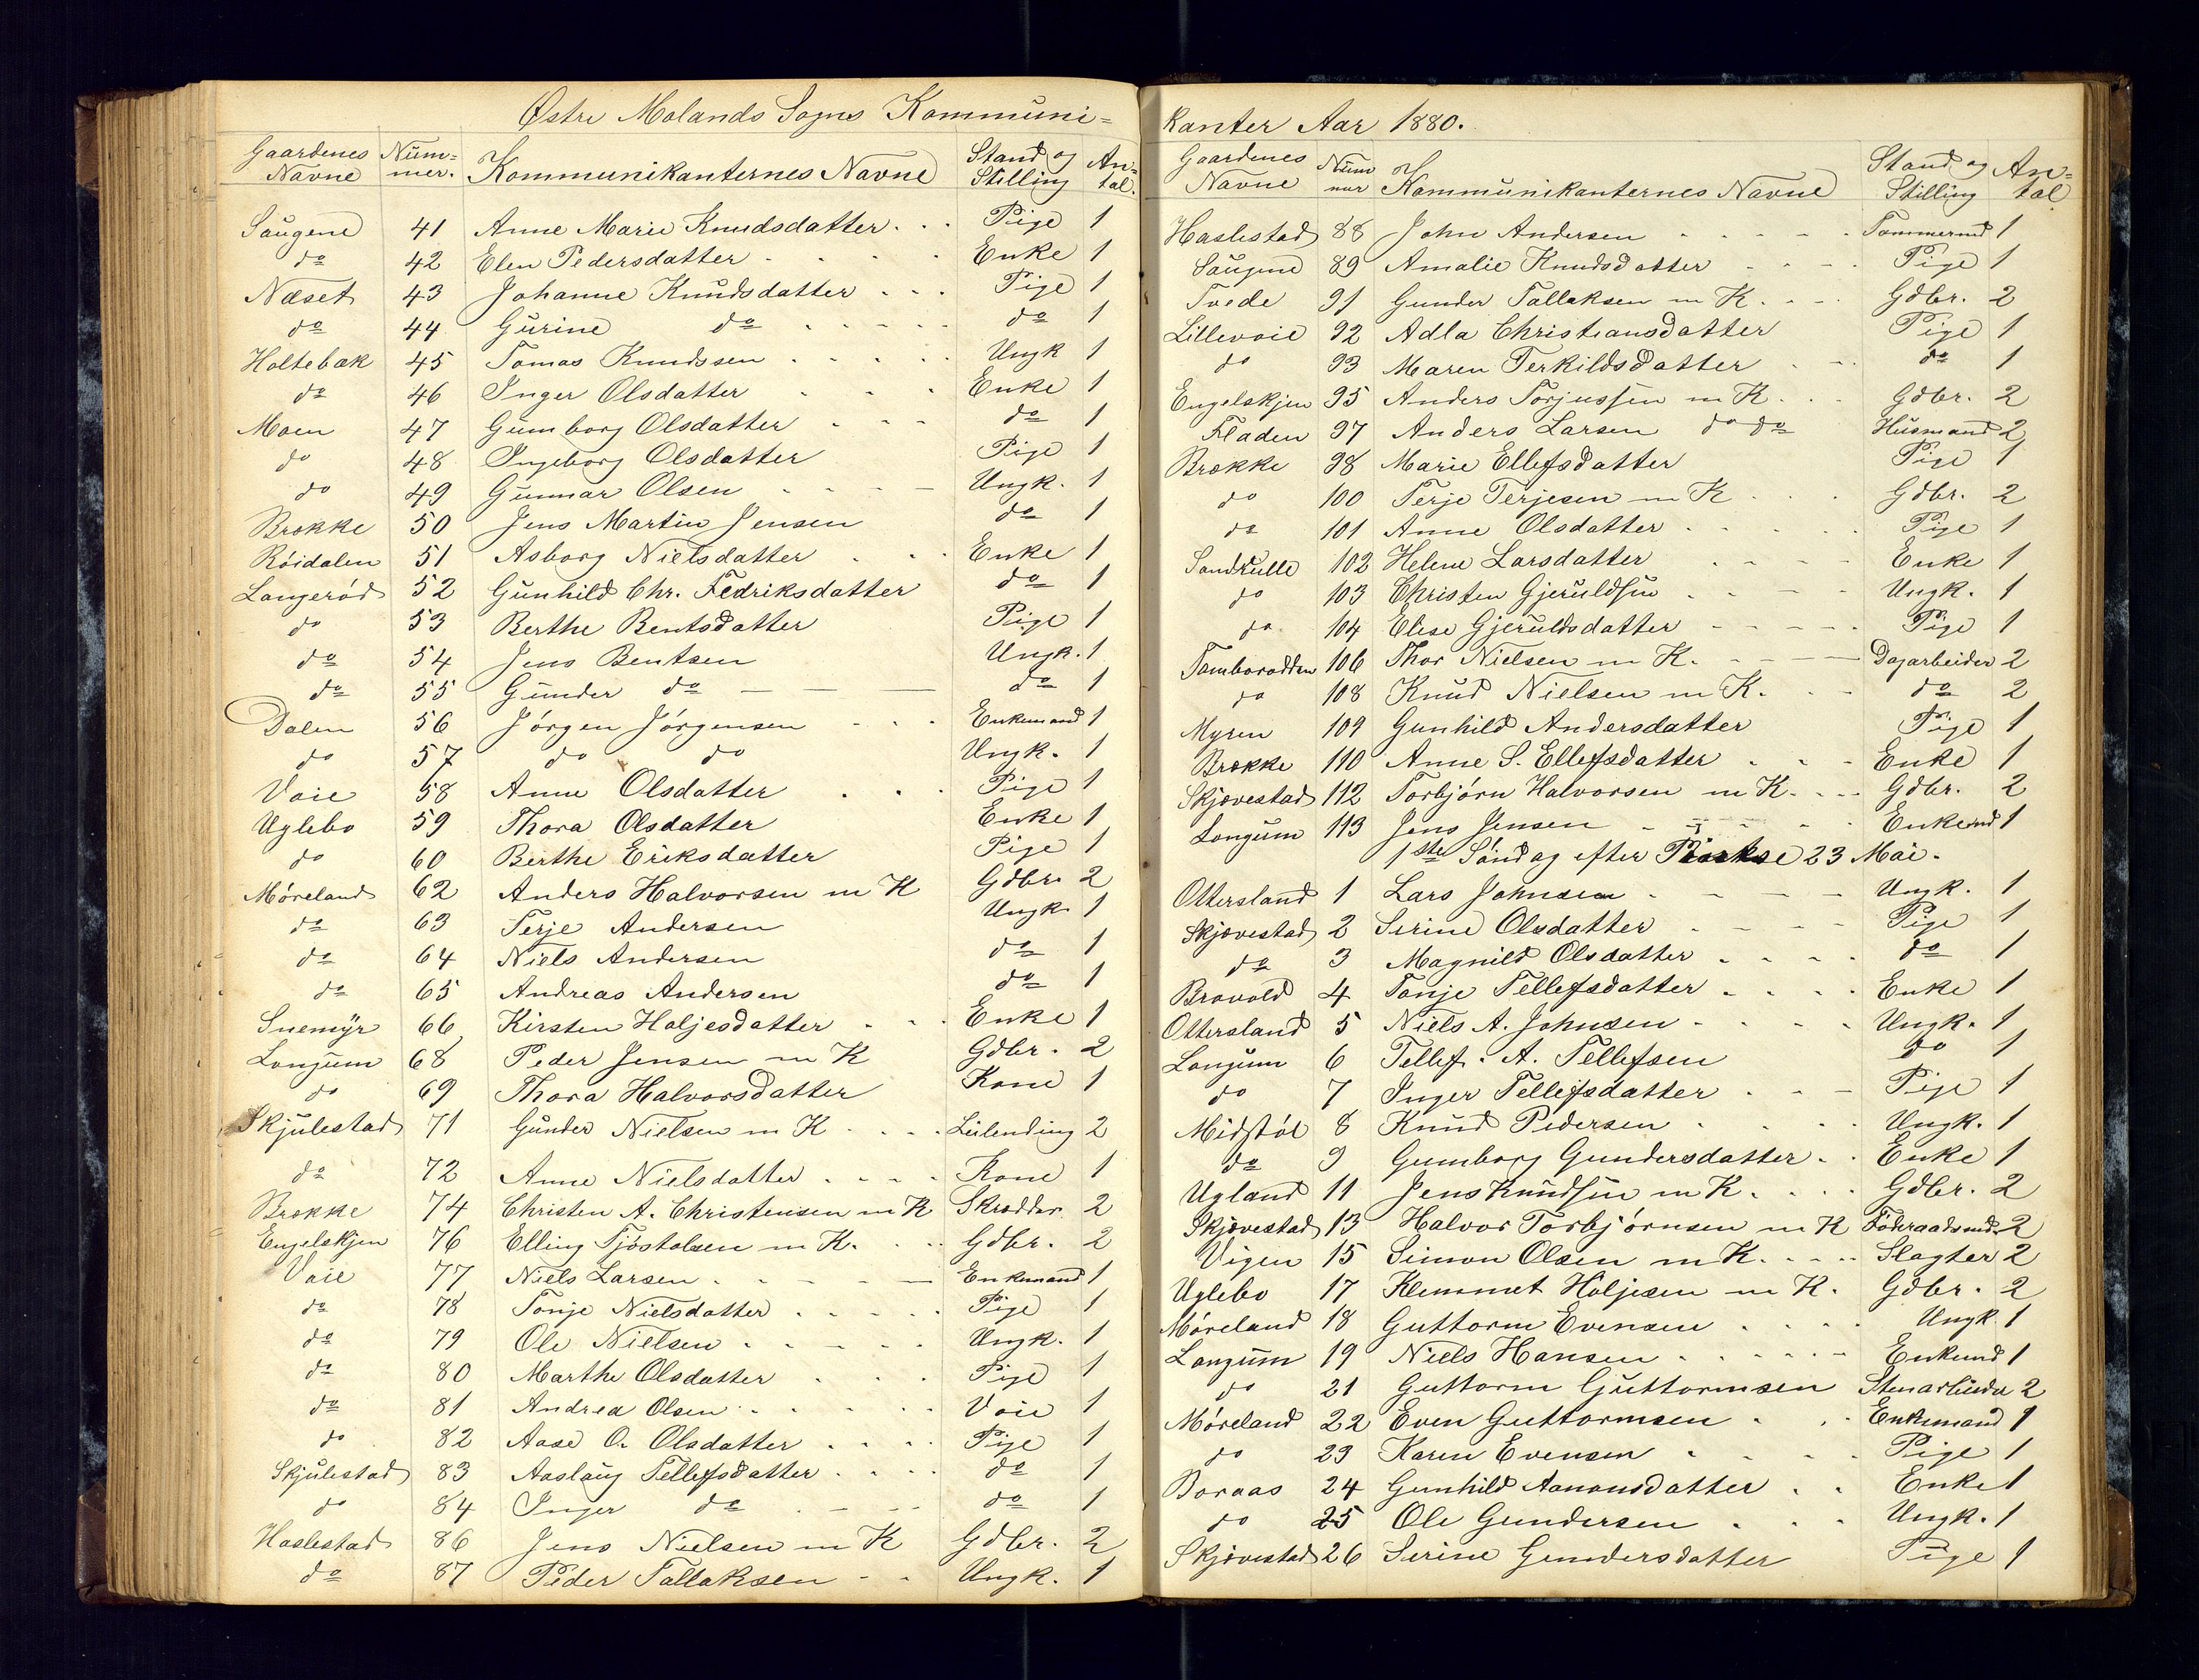 Østre Molands Sogns Kommuni=
Gaardenes Navne Num=mer. Kommunikanternes Navne Stand og Stilling An=tal.
Saugene 41 Anne Marie Knudsdatter Pige 1
do 42 Elen Pedersdatter Enke 1
Næset 43 Johanne Knudsdatter Pige 1
do 44 Gurine do do 1
Holtebæk 45 Tomas Knudssen Ungk 1
do 46 Inger Olsdatter Enke 1
Moen 47 Gumborg Olsdatter do 1
do 48 Ingeborg Olsdatter Pige 1
do 49 Gunnar Olsen Ungk. 1
Brække 50 Jens Martin Jensen do 1
Röidalen 51 Asborg Nielsdatter Enke 1
Langerød 52 Gunhild Chr. Fedriksdatter do 1
do 53 Berthe Bentsdatter Pige 1
do 54 Jens Bentsen Ungk. 1
do 55 Gunder do do 1
Dalen 56 Jörgen Jörgensen Enkemand 1
do 57 do do Ungk. 1
Vaie 58 Anne Olsdatter Pige 1
Uglebo 59 Thora Olsdatter Enke 1
do 60 Berthe Eriksdatter Pige 1
Møreland 62 Anders Halvorsen m K Gdbr. 2
do 63 Terje Andersen Ungk 1
do 64 Niels Andersen do 1
do 65 Andreas Andersen do 1
Snemyr 66 Kirsten Haljesdatter Enke 1
Longum 68 Peder Jensen m K Gdbr. 2
do 69 Thora Halvorsdatter Kone 1
Skjulestad 71 Gunder Nielsen m K Leilending 2
do 72 Anne Nielsdatter Kone 1
Brække 74 Christen A. Christensen m K Skrædder 2
Engelskjen 76 Elling Tjöstolsen m K. Gdbr. 2
Vaie 77 Niels Larsen Enkemand 1
do 78 Tonje Nielsdatter Pige 1
do 79 Ole Nielsen Ungk. 1
do 80 Marthe Olsdatter Pige 1
do 81 Andrea Olsen Vaie 1
do 82 Aase O. Olsdatter Pige 1
Skjulestad 83 Aaslaug Tellefsdatter do 1
do 84 Inger do do 1
Haslestad 86 Jens Nielsen m K Gdbr. 2
do 87 Peder Tallaksen Ungk. 1
kanter Aar 1880.
Gaardenes Navne Num mer Kommunikanternes Navne Stand og Stilling An=tal
Haslestad 88 John Andersen Tømmermd 1
Saugene 89 Amalie Knudsdatter Pige 1
Tvede 91 Gunder Tallaksen m K. Gdbr. 2
Lillevaie 92 Adla Christiansdatter Pige 1
do 93 Maren Terkildsdatter do 1
Engelskjen 95 Anders Torjussen m K. Gdbr. 2
Fladen 97 Anders Larsen do do Husmand 2
Brække 98 Marie Ellefsdatter Pige 1
do 100 Terje Terjesen m K Gdbr. 2
do 101 Anne Olsdatter Pige 1
Sandkulle 102 Helene Larsdatter Enke 1
do 103 Christen Gjeruldsen Ungk. 1
do 104 Elise Gjeruldsdatter Pige 1
Tamborodden 106 Thor Nielsen m K. Dagarbeider 2
do 108 Knud Nielsen m K. do 2
Myren 109 Gunhild Andersdatter Pige 1
Brække 110 Anne S. Ellefsdatter Enke 1
Skjævestad 112 Torbjørn Halvorsen m K. Gdbr. 2
Longum 113 Jens Jensen Enkemd 1
1ste Söndag efter 23 Mai.
Ottersland 1 Lars Johnsen Ungk. 1
Skjævestad 2 Serine Olsdatter Pige 1
do 3 Magnild Olsdatter do 1
Brovold 4 Tonje Tellefsdatter Enke 1
Ottersland 5 Niels A. Johnsen Ungk. 1
Longum 6 Tellef. A. Tellefsen do 1
do 7 Inger Tellefsdatter Pige 1
Midstøl 8 Knud Pedersen Ungk. 1
do 9 Gumborg Gundersdatter Enke 1
Ugland 11 Jens Knudsen m K. Gdbr. 2
Skjævestad 13 Halvor Torbjørnsen m K Föderaadsmd. 2
Vigen 15 Simon Olsen m K. Slagter 2
Uglebo 17 Klemmet Haljesen m K. Gdbr. 2
Møreland 18 Guttorm Evensen Ungk 1
Longum 19 Niels Hansen Enkemd 1
do 21 Guttorm Guttormsen Stenarbeider 2
Møreland 22 Even Guttormsen Enkemand 1
do 23 Karen Evensen Pige 1
Boraas 24 Gunhild Aanonsdatter Enke 1
do 25 Ole Gundersen Ungk. 1
Skjævestad 26 Serine Gundersdatter Pige 1